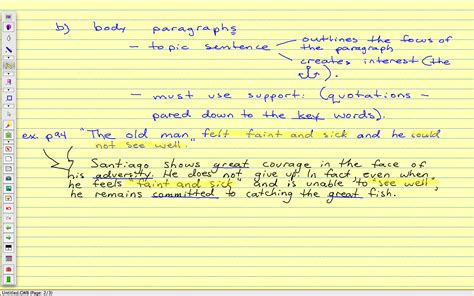 b) body paragraphs
- topic sentence - outlines the focus of
the paragraph
creates interest (the
).
- must use support: (quotations -
pared down to the key words).
ex. p94 "The old man felt faint and sick and he could
not see well."
Santiago shows great courage in the face of
his adversity. He does not give up. In fact, even when
he feels "faint and sick" and is unable to "see well",
he remains committed to catching the great fish.
Untitled.GWB (Page: 2/3)